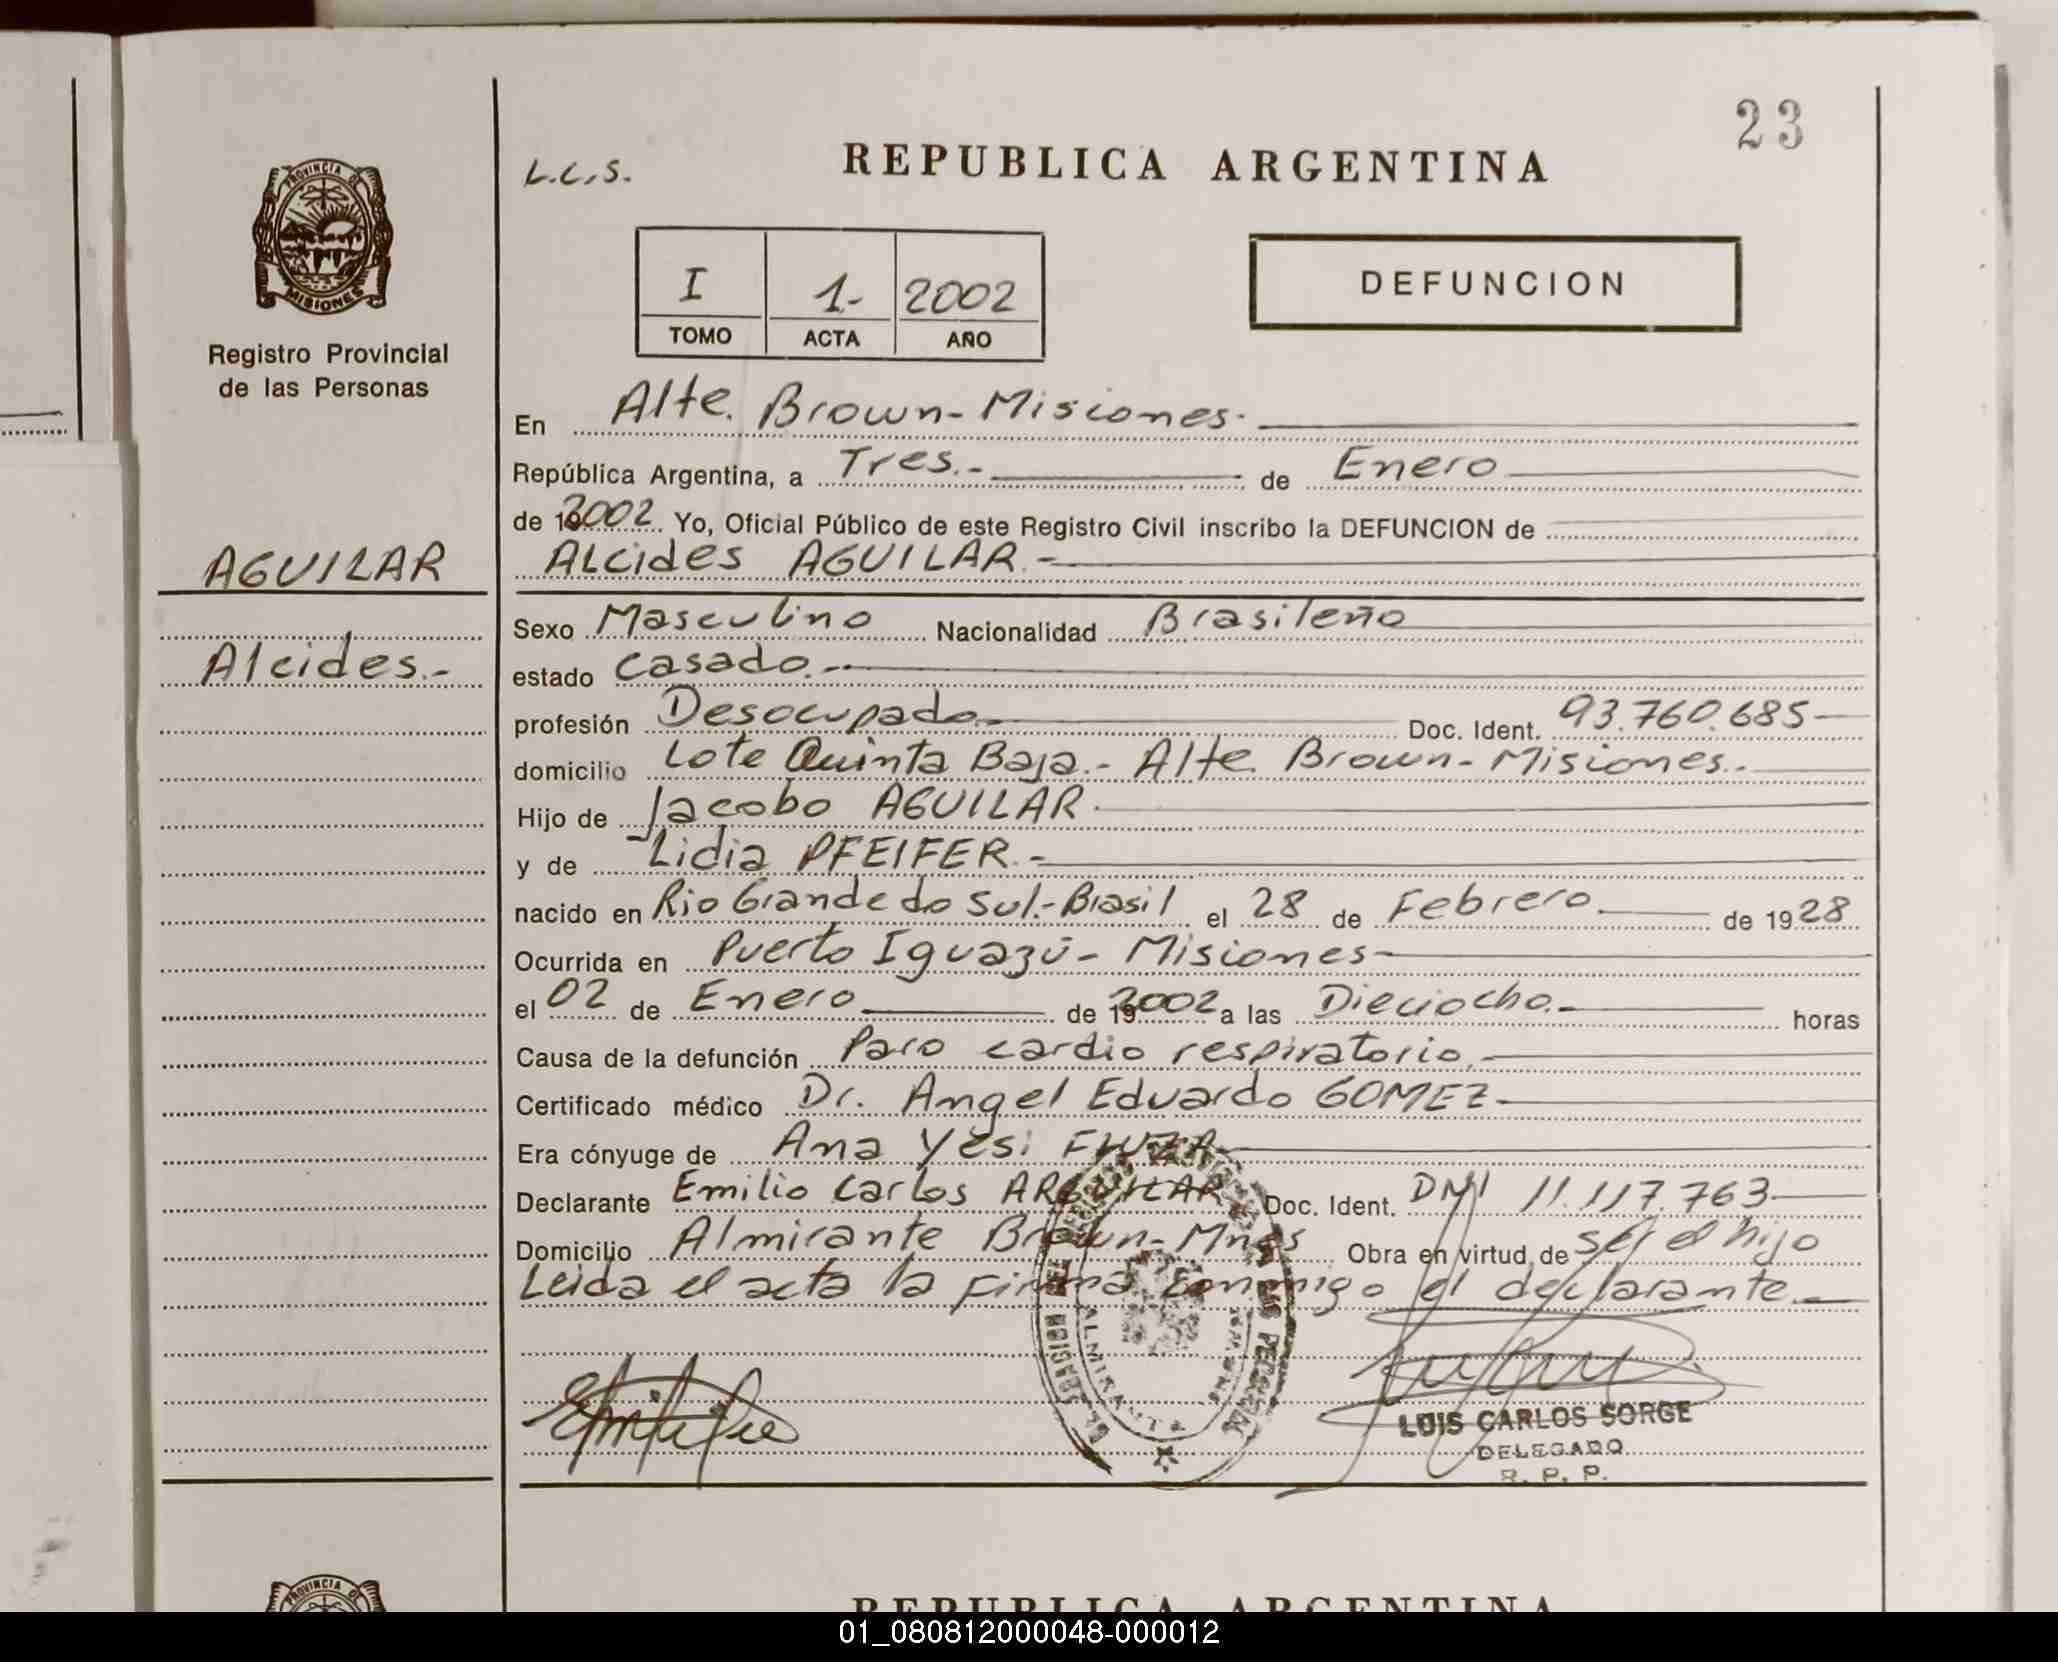 23
L.C.S.
REPUBLICA ARGENTINA
PROVINCIA DE
MISIONES
Registro Provincial
de las Personas
I 1- 2002
TOMO ACTA AÑO
DEFUNCION
En Alte. Brown - Misiones.
República Argentina, a Tres.- de Enero
de 2002 Yo, Oficial Público de este Registro Civil inscribo la DEFUNCION de
AGUILAR
ALcides AGUILAR.-
Sexo Masculino Nacionalidad Brasileño
Alcides.-
estado casado.-
profesión Desocupado.- Doc. Ident. 93.760.685
domicilio Lote Quinta Baja.- Alte. Brown - Misiones.-
Hijo de Jacobo AGUILAR
y de Lidia PFEIFER.-
nacido en Rio Grande do Sul.- Brasil el 28 de Febrero de 1928
Ocurrida en Puerto Iguazú - Misiones
el 02 de Enero de 2002 a las Dieciocho.- horas
Causa de la defunción Paro cardio respiratorio.
Certificado médico Dr. Angel Eduardo GOMEZ
Era cónyuge de Ana Yesi
Declarante Emilio Carlos Doc. Ident. DNI 11.117.763
Domicilio Almirante Brown - Mnes Obra en virtud de ser el hijo
Leida el acta la firma conmigo el declarante.
LUIS CARLOS SORGE
DELEGADO
R. P. P.
PROVINCIA DE
REPUBLICA ARGENTINA
01_080812000048-000012